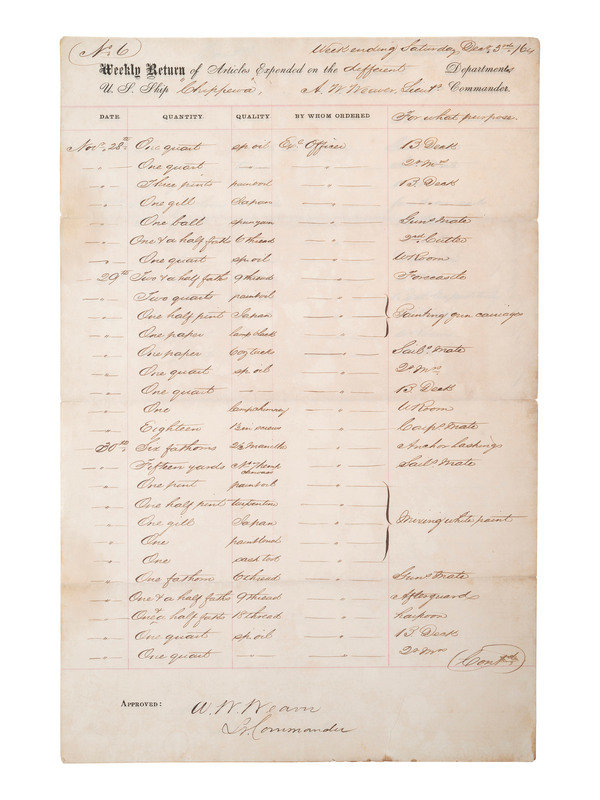 No. 6 Week ending Saturday Decr. 3rd. 164
Weekly Return of Articles Expended on the different Departments
U. S. Ship Chippewa, A. W. Weaver, Lieut. Commander.
DATE. QUANTITY. QUALITY BY WHOM ORDERED For what purpose.
Novr. 28th One quart sp oil Exc Officer B. Deck
" One quart — " — 
" Three pints paint oil — " B. Deck
" One gill Japan — " — " —
" One ball spunyan — " Guns Mate
" One & a half faths 6 thread — " 2nd Cutter
" One quart sp. oil — " W Room
29th Two & a half faths 9 thread — " Forecastle
" Two quarts paint oil — "
" One half pint Japan — " Painting gun carriages
" One paper lamp black — "
" One paper 6 oz tacks — " Sails Mate
" One quart sp oil — "
" One quart — " — " B. Deck
" One lamp chimney — " W Room
" Eighteen screws — " Carps Mate
30th Six fathoms Manilla — " Anchor lashings
" Fifteen yards canvass — " Sails Mate
" One pint paint oil — "
" One half pint turpentine — "
" One gill Japan — " Mixing white paint
" One — "
" One — "
" One fathom 6 thread — " Guns Mate
" One & a half faths 9 thread — " Afterguard
" One & a half faths 18 thread — " harpoon
" One quart sp. oil — " B. Deck
" One quart — " — "
Contd
APPROVED: A. W. Weaver
Lt. Commander